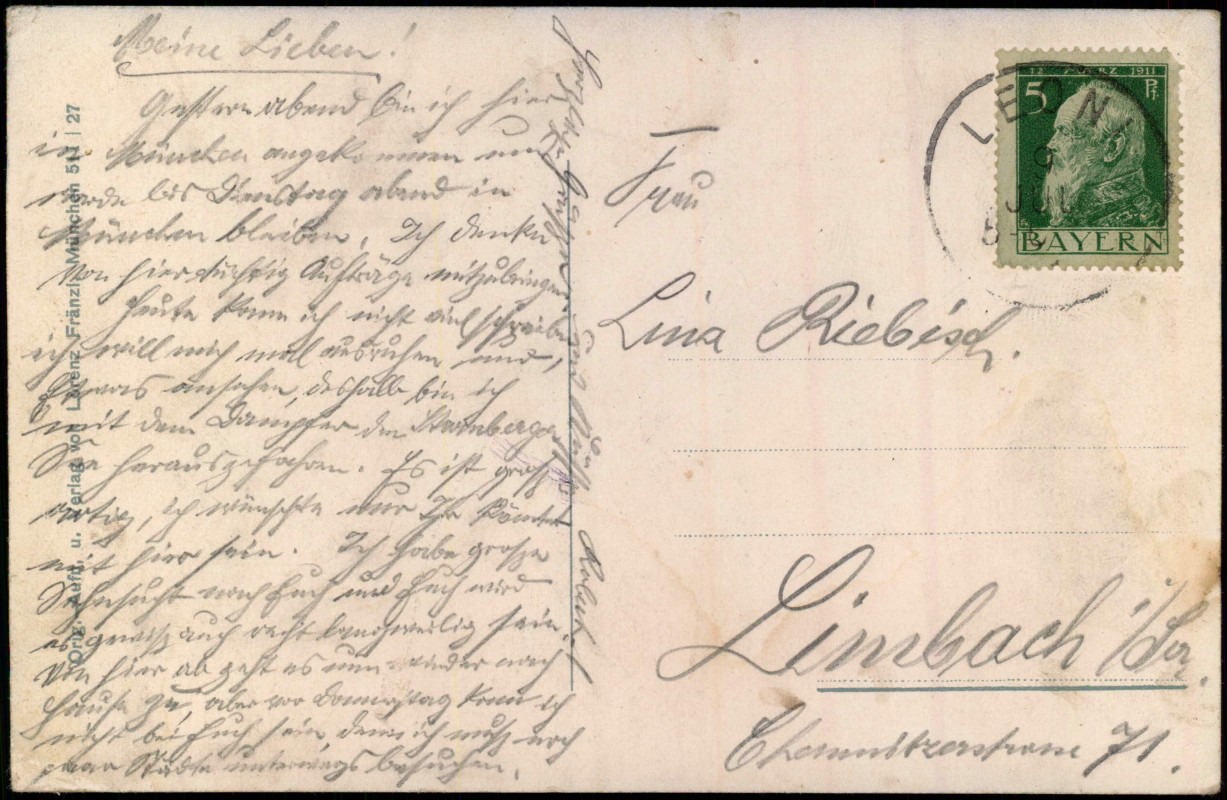 Meine Lieben!
Gestern abend bin ich hier
in München angekommen und
werde bis Dienstag abend in
München bleiben. Ich denke
von hier tüchtig Aufträge mitzubringen.
Heute kann ich nicht viel schreiben
ich will mich mal ausruhen und
etwas ansehen, deshalb bin ich
mit dem Dampfer den Starnberger
See herausgefahren. Es ist groß-
artig, ich wünschte nur Ihr könntet
mit hier sein. Ich habe große
Sehnsucht nach Euch und Euch wird
es gewiß auch recht langweilig sein.
Von hier ab geht es nun wieder nach
Hause zu, aber vor Donnerstag kann ich
nicht bei Euch sein denn ich muß noch
paar Städte unterwegs besuchen.
Grüßen und Küsse
Orig. Aufn. u. Verlag von Lorenz Fränzl, München 511 | 27
12. MÄRZ 1911
5 Pf.
BAYERN
LEONI
9 JUN
Frau
Lina Riebisch.
Limbach i/Sa.
Chemnitzerstrasse 71.